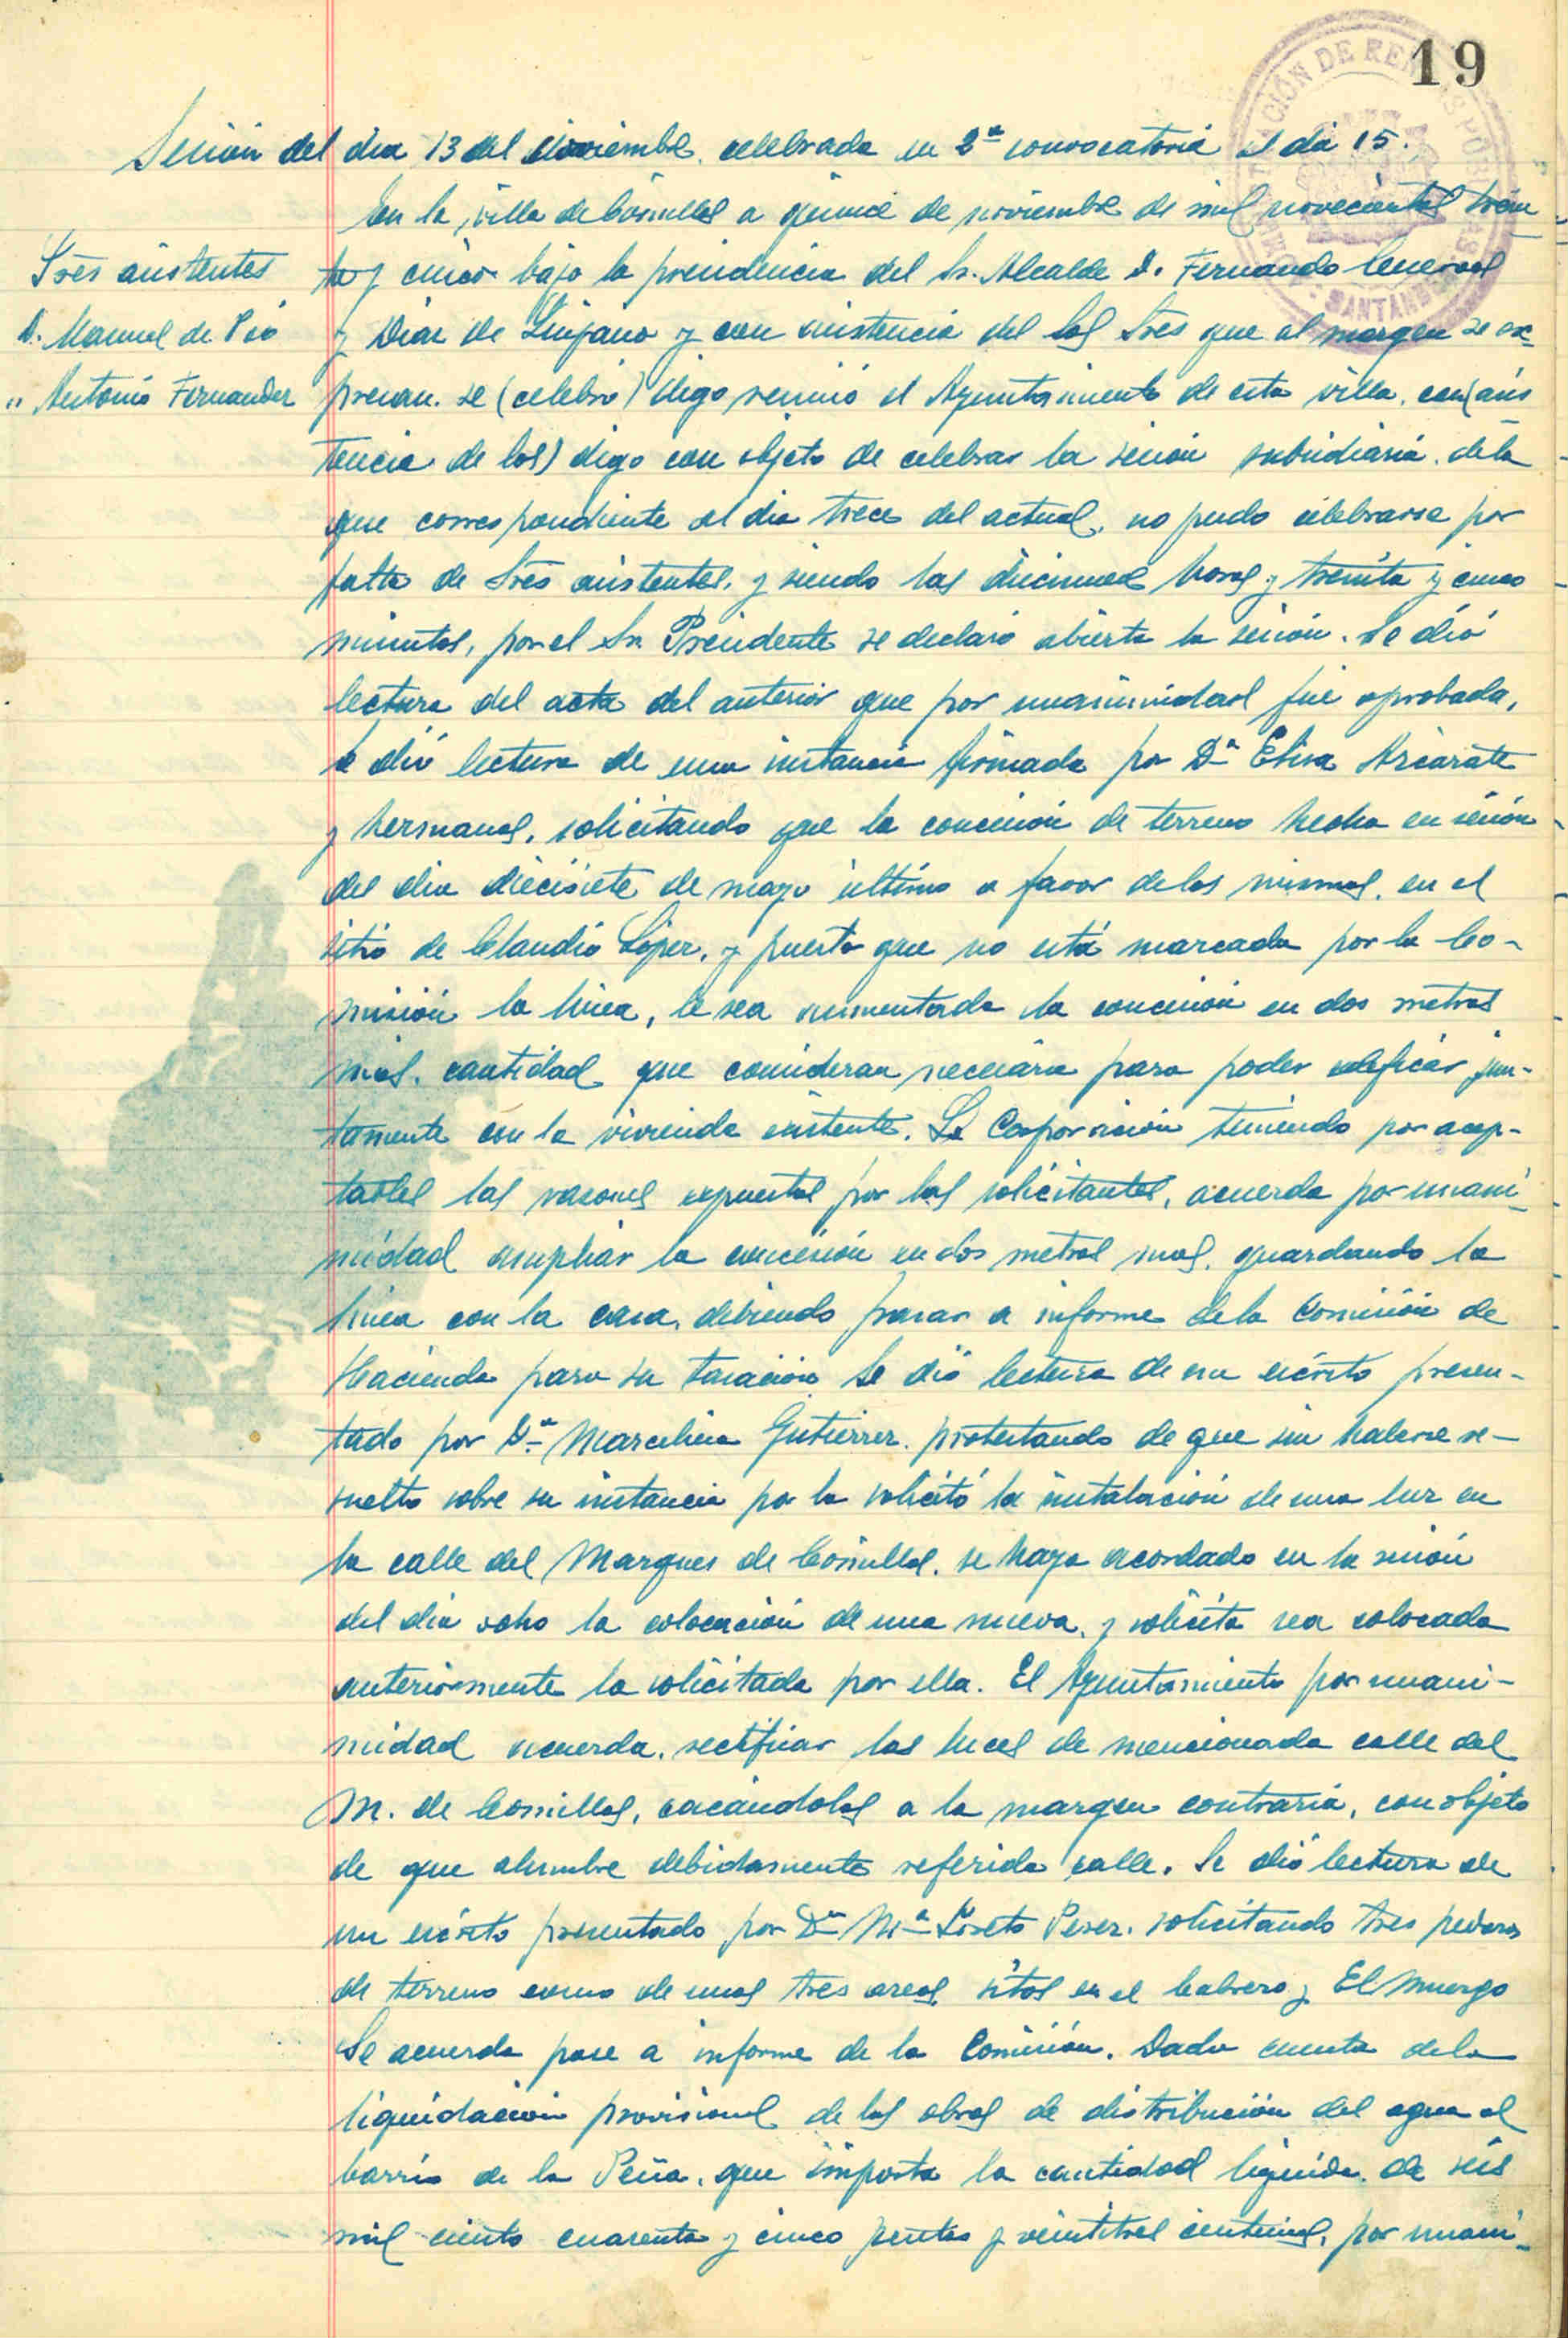 19
ADMINISTRACIÓN DE RENTAS PÚBLICAS
SANTANDER
Sesión del dia 13 del noviembre celebrada en 2ª convocatoria el dia 15.
En la villa de Comillas a quince de noviembre de mil novecientos trein
Sres asistentes
ta y cinco bajo la presidencia del Sr. Alcalde D. Fernando
D. Manuel de Pio
y Diaz de Quijano y con asistencia del los Sres que al margen se ex-
" Antonio Fernandez
presan. se (celebró) digo reunió el Ayuntamiento de esta villa. con (asis
tencia de los) digo con objeto de celebrar la sesión subsidiaria. de la
que correspondiente al dia trece del actual, no pudo celebrarse por
falta de Sres asistentes, y siendo las diecinueve horas y treinta y cinco
minutos, por el Sr. Presidente se declaró abierta la sesión. Se dió
lectura del acta del anterior que por unanimidad fue aprobada,
Se dió lectura de una instancia firmada por Dª Elisa Azcarate
y hermanas, solicitando que la concesión de terreno hecha en sesión
del dia diecisiete de mayo último a favor de las mismas, en el
sitio de Claudio López, y puesto que no está marcada por la Co-
misión la linea, le sea aumentada la concesión en dos metros
más, cantidad que consideran necesaria para poder edificar jun-
tamente con la vivienda existente. La Corporación teniendo por acep-
tables las razones expuestas por las solicitantes, acuerda por unani-
midad ampliar la concesión en dos metros mas, guardando la
linea con la casa, debiendo pasar a informe de la Comisión de
Hacienda para su tasación. Se dió lectura de un escrito presen-
tado por Dª Marcelina Gutierrez. protestando de que sin haberse re-
suelto sobre su instancia por la solicitó la instalación de una luz en
la calle del Marques de Comillas, se haya acordado en la sesión
del dia ocho la colocación de una nueva, y solicita sea colocada
anteriormente la solicitada por ella. El Ayuntamiento por unani-
midad acuerda, rectificar las luces de mencionada calle del
M. de Comillas, sacándolas a la margen contraria, con objeto
de que alumbre debidamente referida calle. Se dió lectura de
un escrito presentado por Dª Mª Loreto Perez. solicitando tres pedazos
de terreno como de unas tres areas, sitos en el Cabrero y El Muergo
Se acuerda pase a informe de la Comisión. Dada cuenta de la
liquidación provisional de las obras de distribución del agua al
barrio de la Peña, que importa la cantidad liquida de seis
mil ciento cuarenta y cinco pesetas y veintitres centimos, por unani-